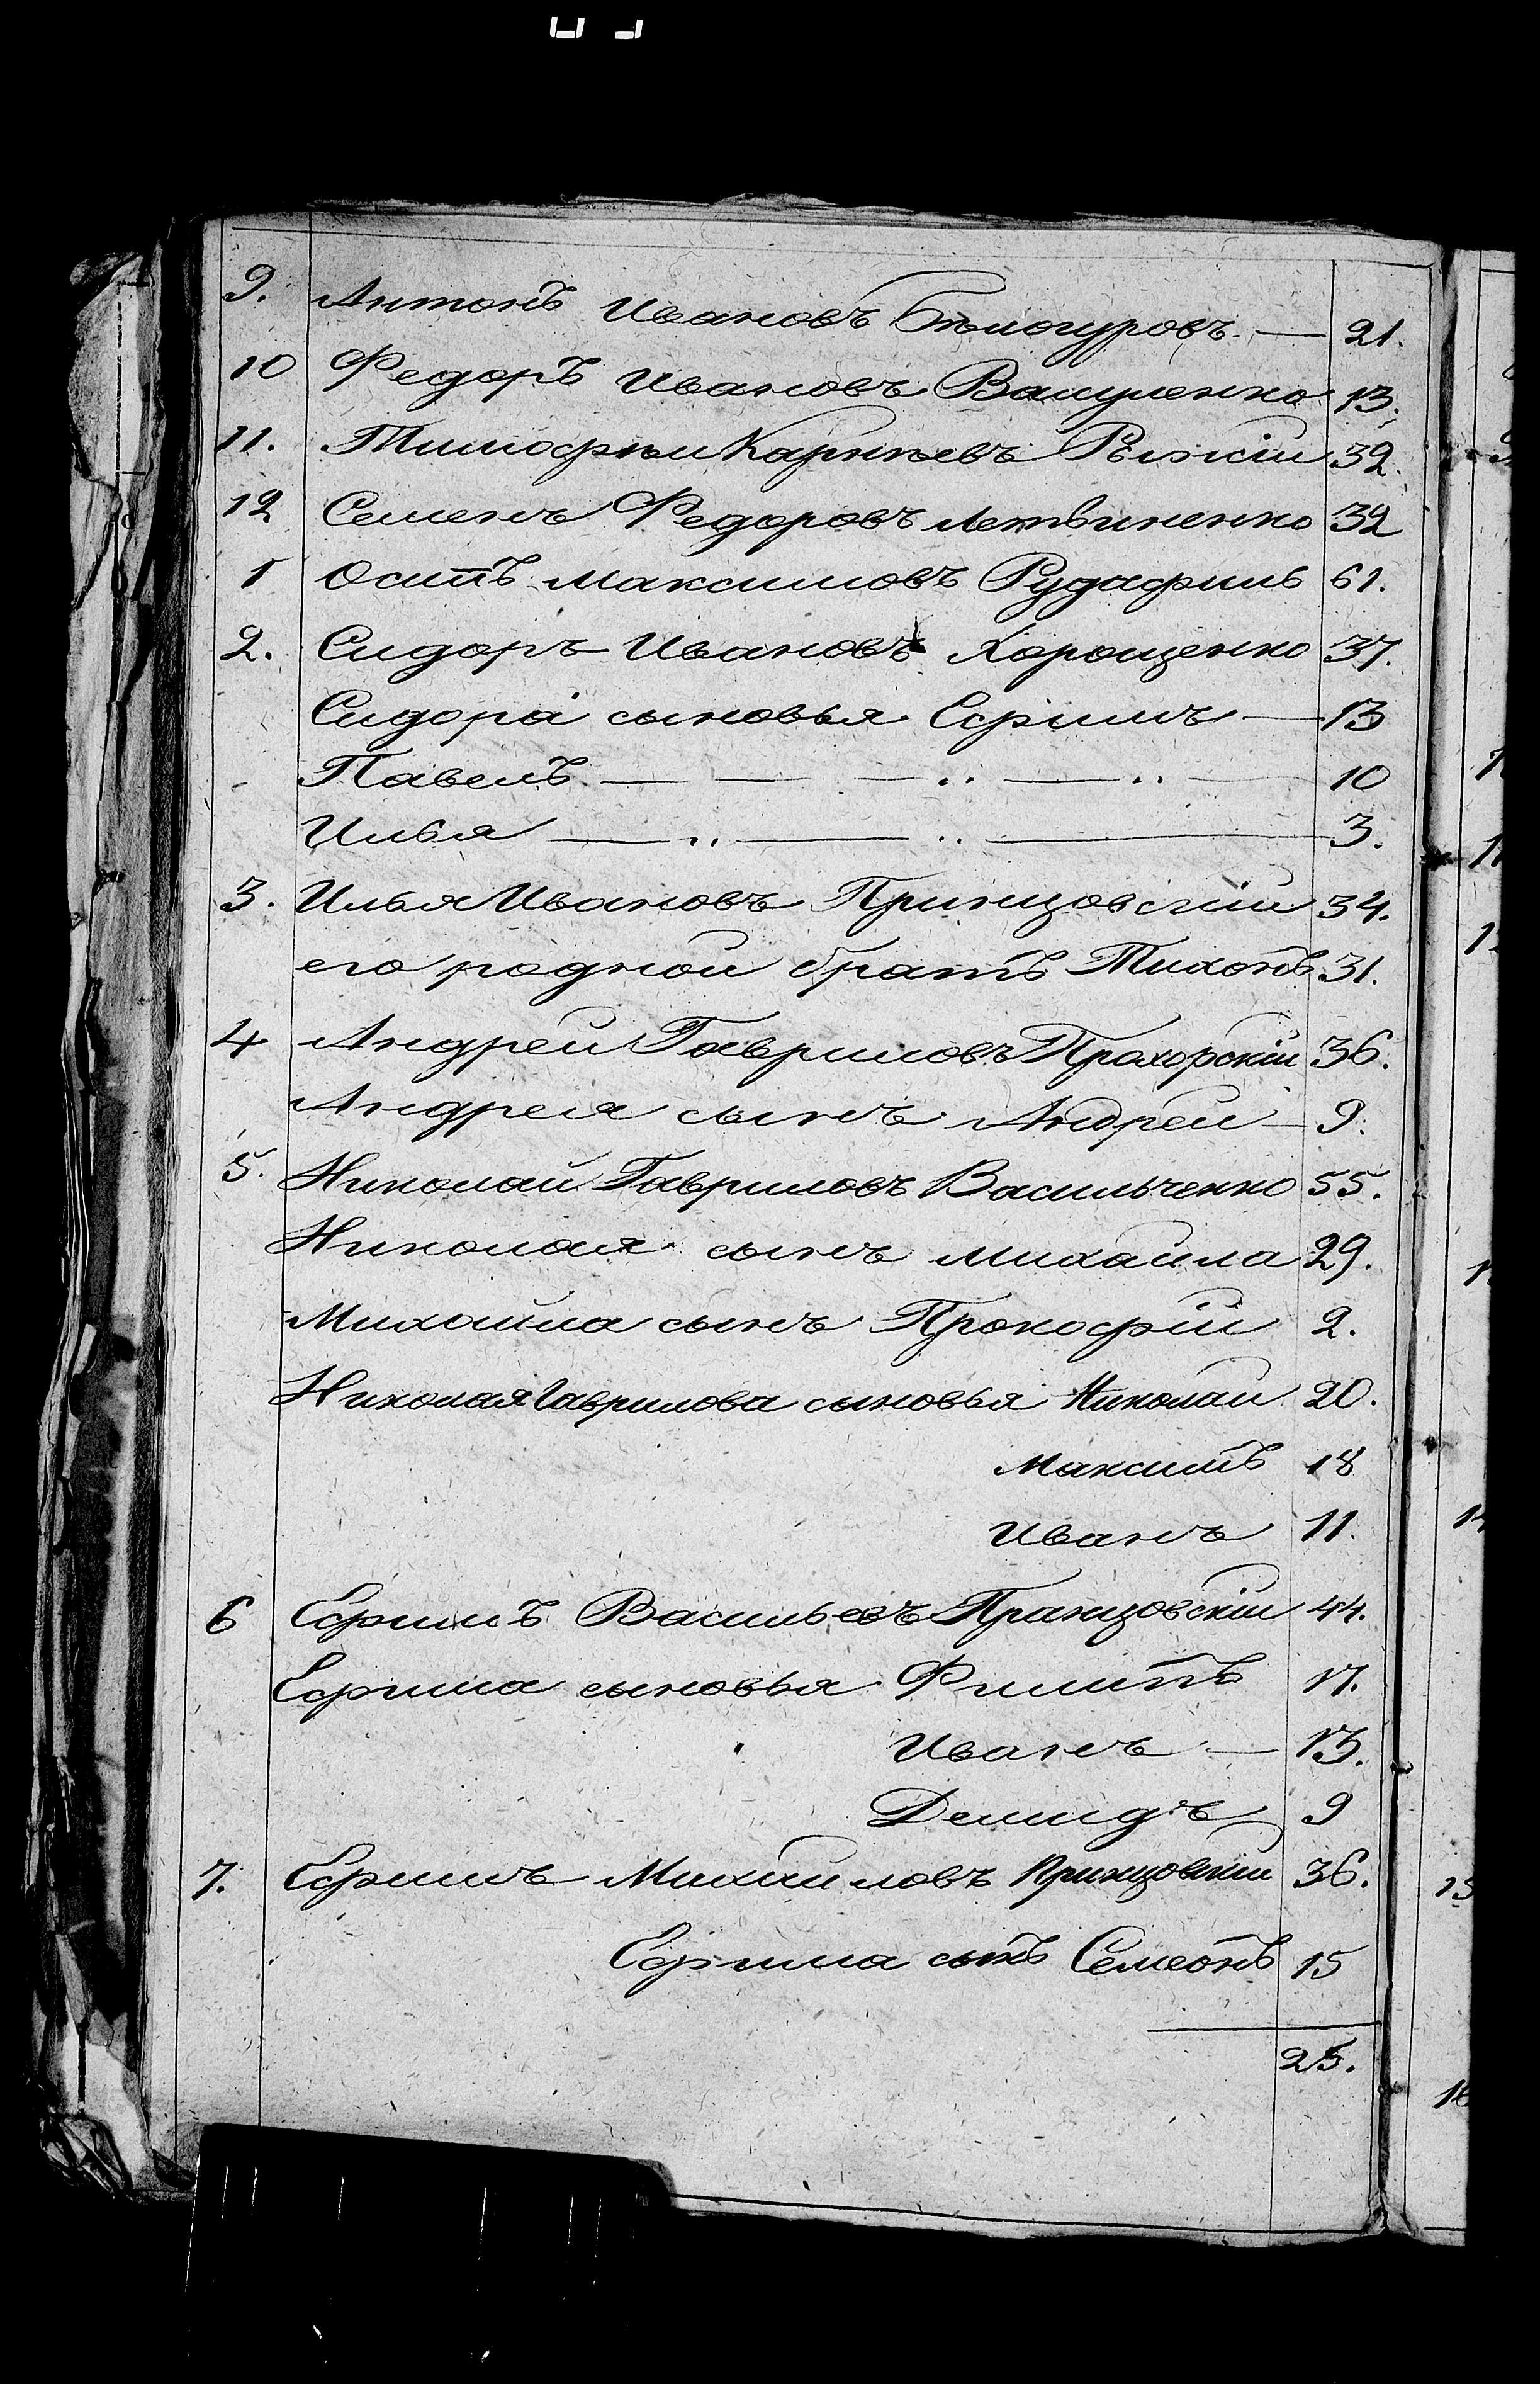 9. Антонъ Ивановъ Бѣлогуровъ — 21.
10 Федоръ Ивановъ Валуценко 13.
11. Тимофѣй Карпѣевъ Рыжкій 32.
12 Семенъ Федоровъ Летвиненко 32
1 Осипъ Максимовъ 61.
2. Сидоръ Ивановъ Хорощенко 37.
Сидора сыновья Ефимъ — 13
Павелъ — — — „ — „ — 10
Илья — „ — „ — 3.
3. Илья Ивановъ Принцовскій 34.
его родной братъ Тихонъ 31.
4 Андрей Гавриловъ Прохорскій 36.
Андрея сынъ Андрей — 9.
5. Николай Гавриловъ Васильченко 55.
Николая сынъ Михайла 29.
Михайла сынъ Прокофій 2.
Николая Гаврилова сыновья Николай 20.
Максимъ 18
Иванъ 11.
6 Ефимъ Васильевъ Пранцовскій 44.
Ефима сыновья Филипъ 17.
Иванъ — 13.
Демидъ 9
7. Ефимъ Михайловъ Принцовскій 36.
Ефима сынъ Семеонъ 15
25.